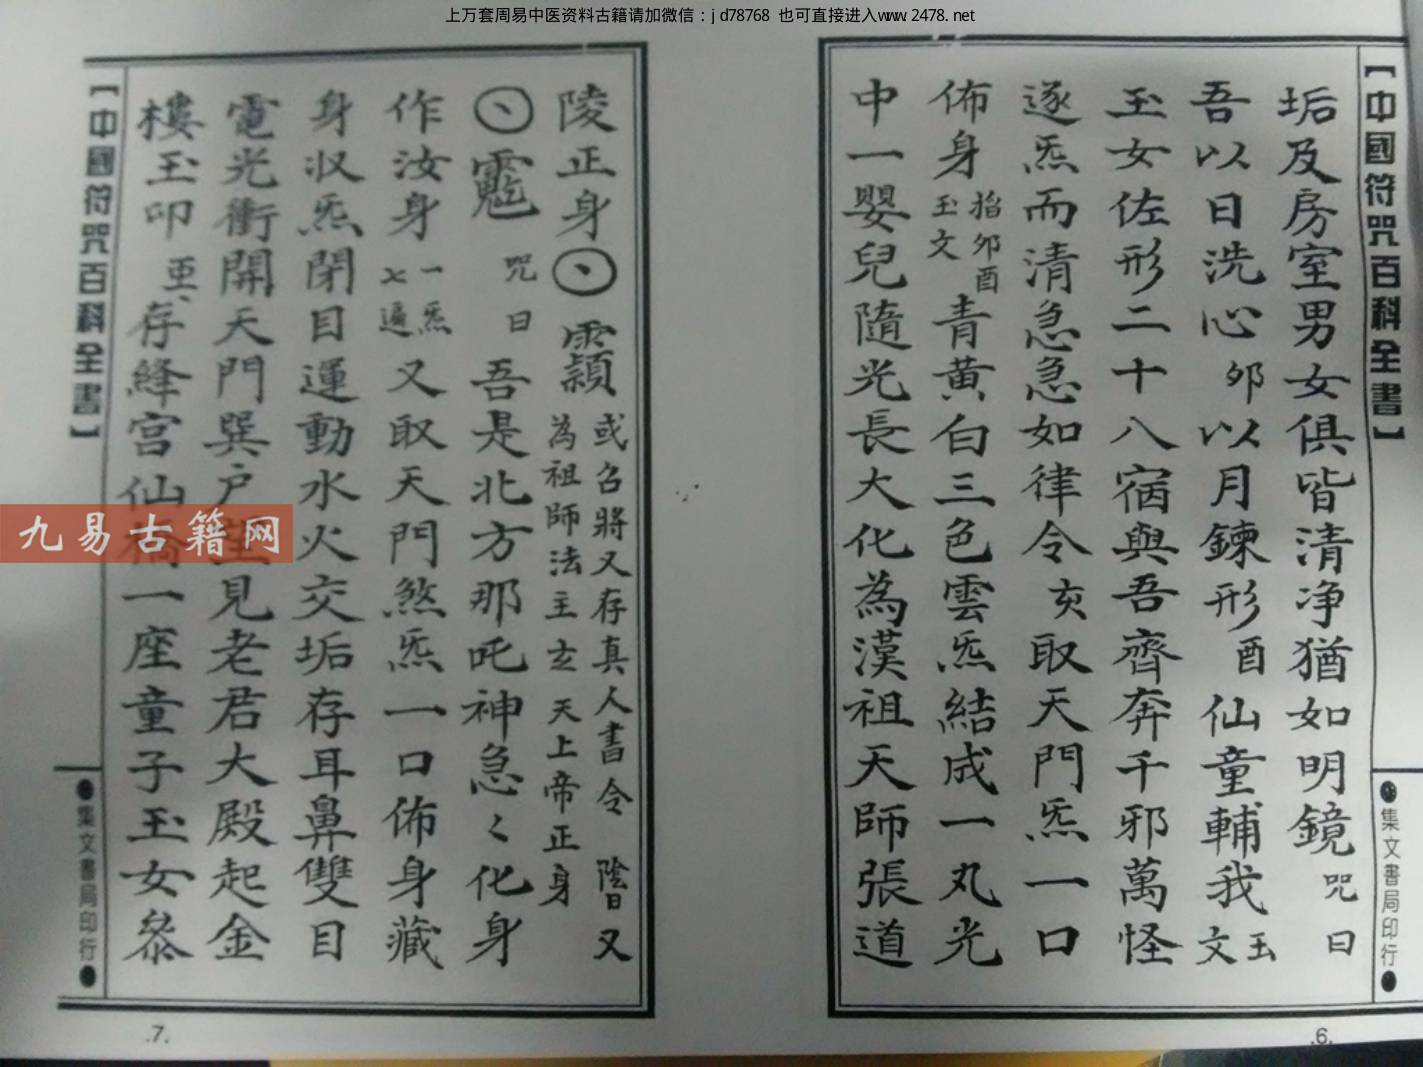 上万套周易中医资料古籍请加微信：jd78768 也可直接进入www.2478.net
【中國符咒百科全書】
垢及房室男女俱皆清净猶如明鏡咒曰
吾以日洗心夘以月鍊形酉仙童輔我玉文
玉女佐形二十八宿與吾齊奔千邪萬怪
逐炁而清急急如律令亥取天門炁一口
佈身掐夘酉玉文青黃白三色雲炁結成一丸光
中一嬰兒隨光長大化為漢祖天師張道
●集文書局印行●
.6.
陵正身
或召將又存真人書令 又
為祖師法主玄天上帝正身
咒曰吾是北方那吒神急々化身
作汝身一炁七遍又取天門煞炁一口佈身藏
身収炁閉目運動水火交垢存耳鼻雙目
電光衝開天門巽户見老君大殿起金
樓玉印 存絳宫仙一座童子玉女叅
【中國符咒百科全書】
●集文書局印行●
.7.
九易古籍网